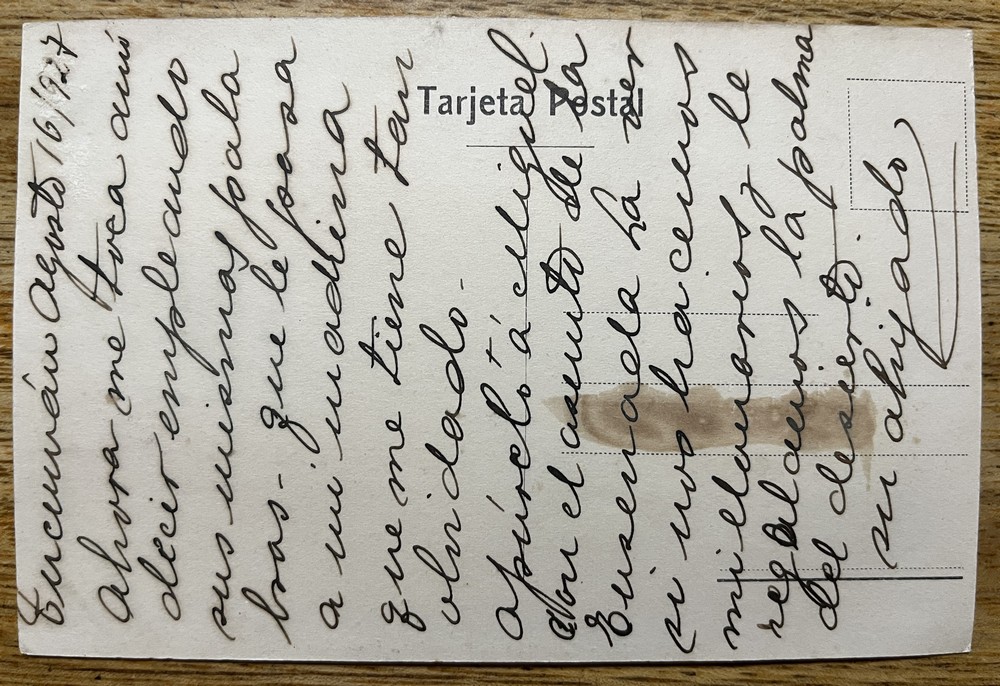 Tarjeta Postal
Tucumán Agosto 16/927
Ahora me toca a mi
decir empleando
sus mismas pala
bras. que le pasa
a mi madrina
que me tiene tan
olvidado.-
apúrelo á Miguel
con el asunto de la
Ensenada ha ver
si nos hacemos
millonarios y le
regalamos la palma
del desierto.
su ahijado